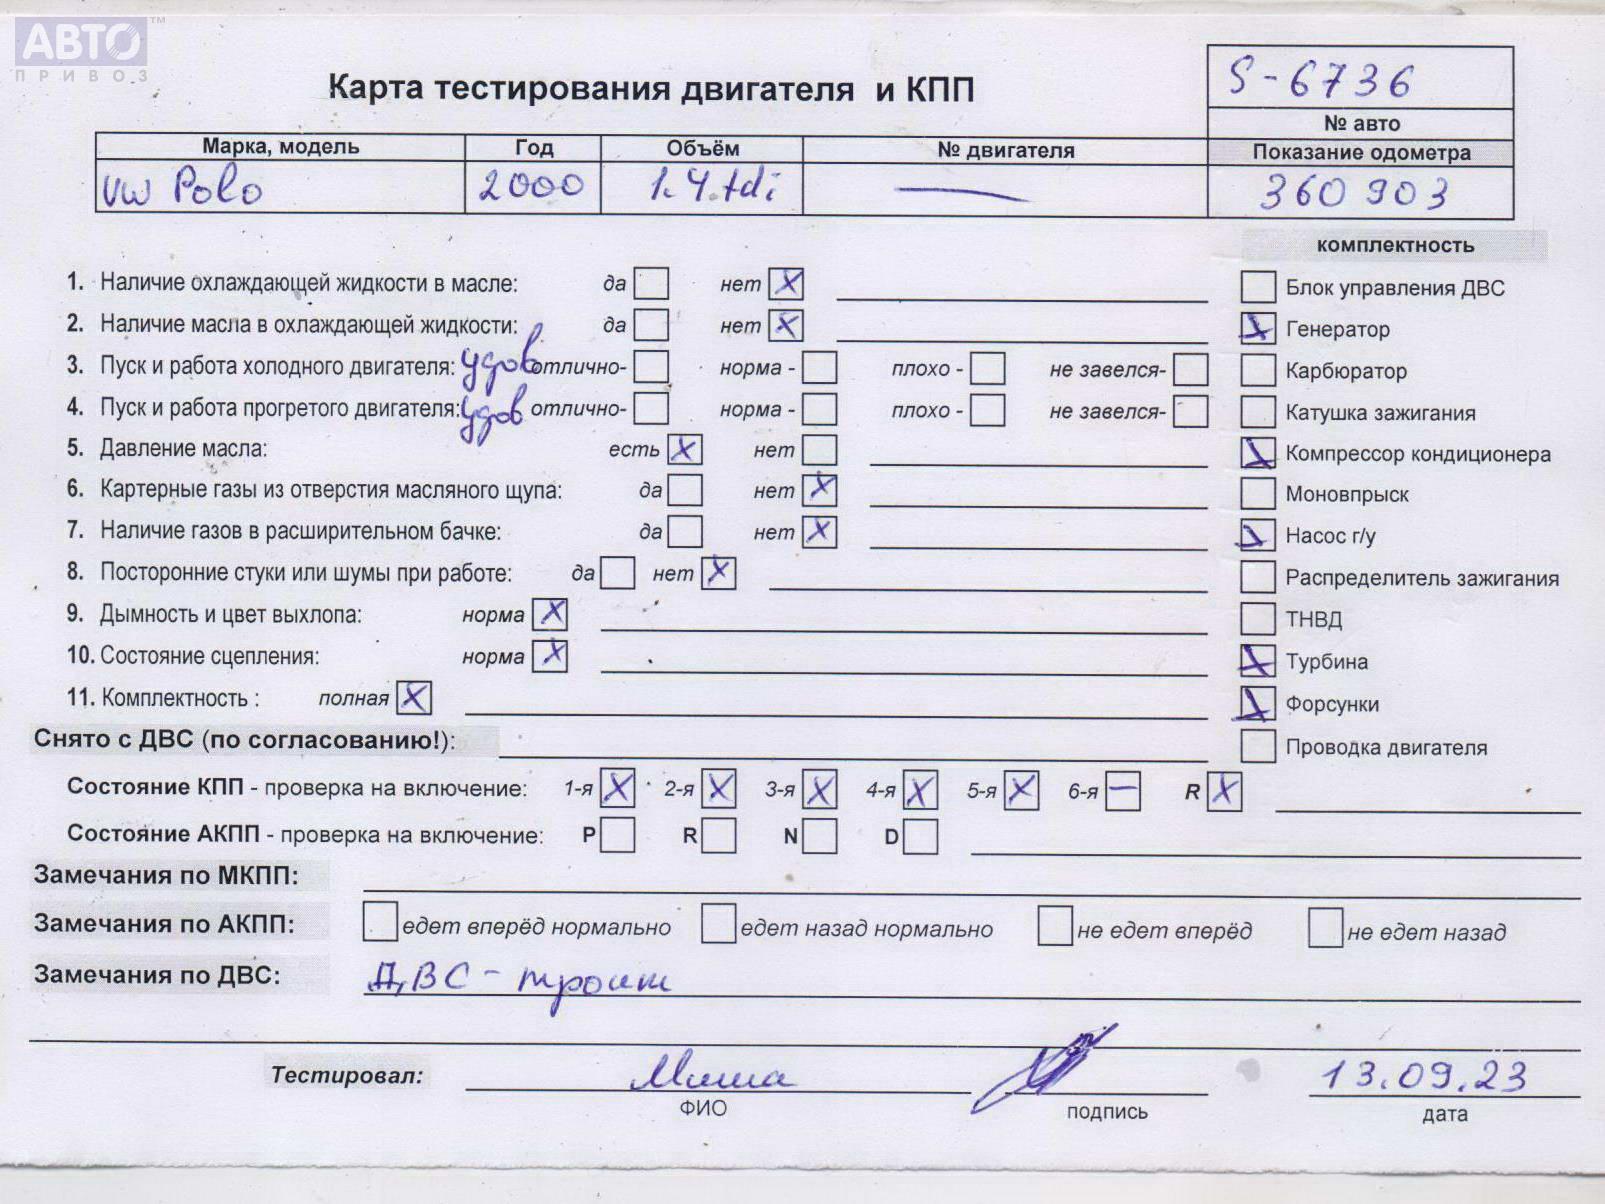 АВТО™
ПРИВОЗ
S-6736
Карта тестирования двигателя и КПП
№ авто
Марка, модель Год Объём № двигателя Показание одометра
VW Polo 2000 1.4.tdi — 360 903
комплектность
1. Наличие охлаждающей жидкости в масле: да нет X
Блок управления ДВС
2. Наличие масла в охлаждающей жидкости: да нет X
X Генератор
3. Пуск и работа холодного двигателя: удов отлично- норма - плохо - не завелся-
Карбюратор
4. Пуск и работа прогретого двигателя: удов отлично- норма - плохо - не завелся-
Катушка зажигания
5. Давление масла: есть X нет
X Компрессор кондиционера
6. Картерные газы из отверстия масляного щупа: да нет X
Моновпрыск
7. Наличие газов в расширительном бачке: да нет X
X Насос г/у
8. Посторонние стуки или шумы при работе: да нет X
Распределитель зажигания
9. Дымность и цвет выхлопа: норма X
ТНВД
10. Состояние сцепления: норма X
X Турбина
11. Комплектность : полная X
X Форсунки
Снято с ДВС (по согласованию!):
Проводка двигателя
Состояние КПП - проверка на включение: 1-я X 2-я X 3-я X 4-я X 5-я X 6-я — R X
Состояние АКПП - проверка на включение: P R N D
Замечания по МКПП:
Замечания по АКПП: едет вперёд нормально едет назад нормально не едет вперёд не едет назад
Замечания по ДВС: ДВС - троит
Тестировал: Миша 13.09.23
ФИО подпись дата